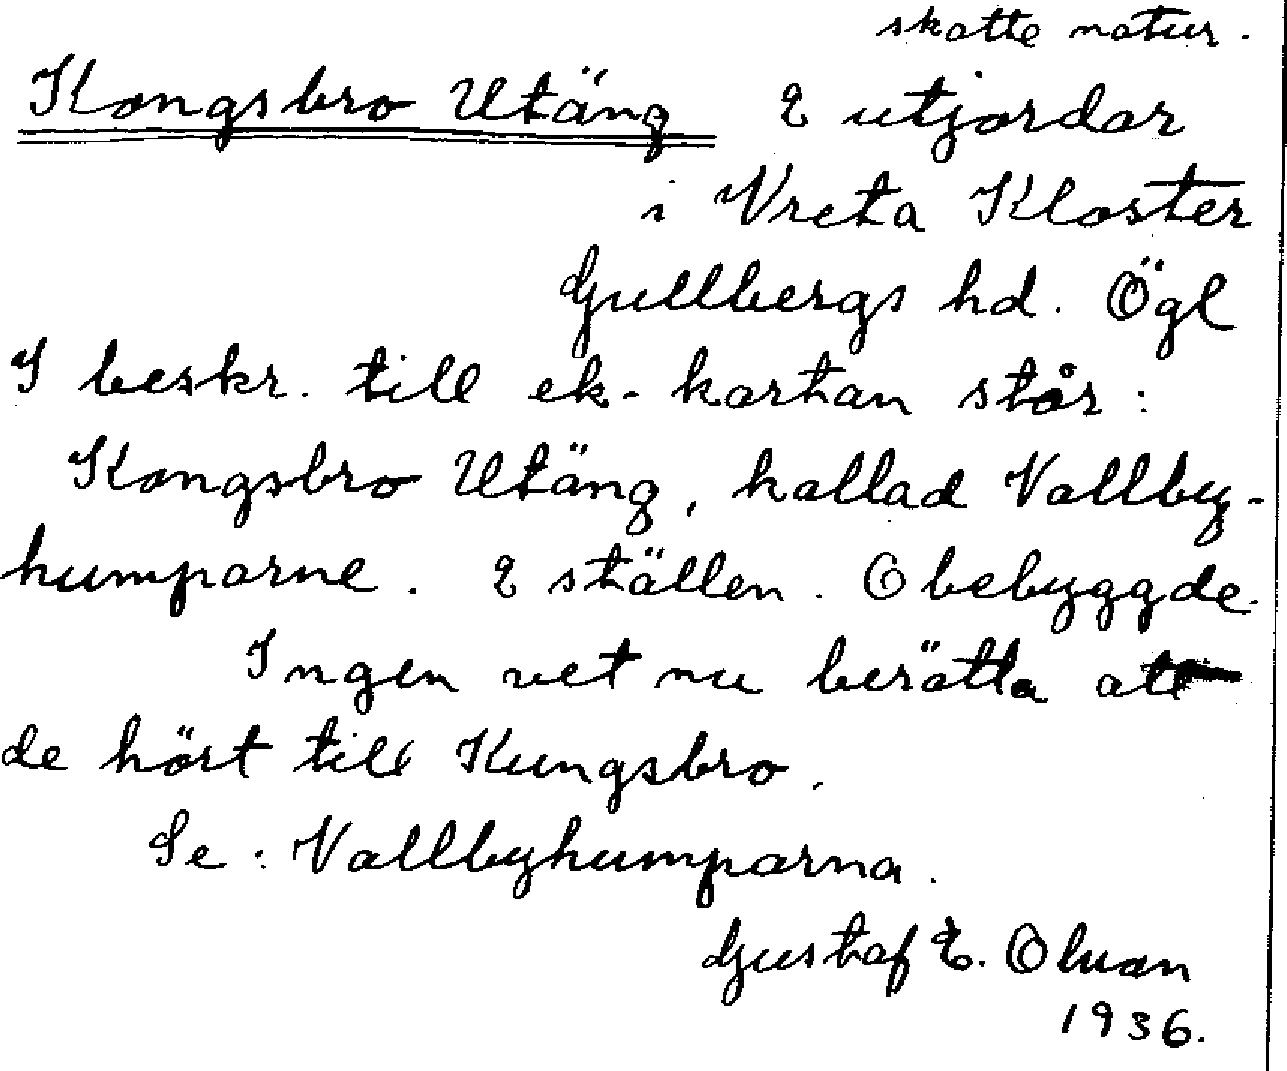 skatte natur.
Kongsbro Utäng 2 utjordar
i Vreta Kloster
Gullbergs hd. Ögl
I beskr. till ek-kartan står:
Kongsbro Utäng, kallad Vallby-
humparne. 2 ställen. Obebyggde.
Ingen vet nu berätta att
de hört till Kungsbro.
Se: Vallbyhumparna.
Gustaf E.
1936.